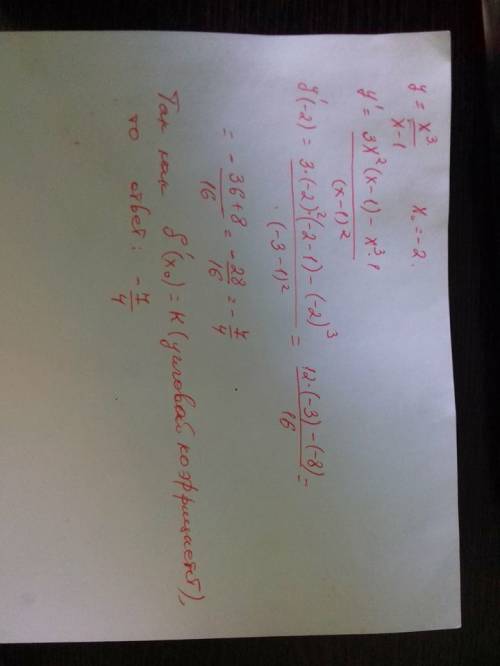 y = x³/x-1   x₀ = -2.
y' = 3x²(x-1) - x³·1/(x-1)²
y'(-2) = 3·(-2)²(-2-1) - (-2)³/(-3-1)² = 12·(-3) - (-8)/16 =
= -36+8/16 = -28/16 = -7/4
Так как f'(x₀) = k (угловой коэффициент),
то ответ: -7/4